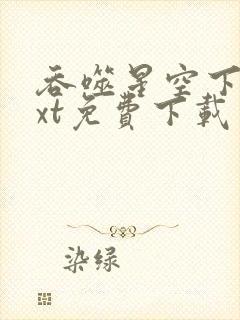 吞噬星空下
xt免費下載
染绿